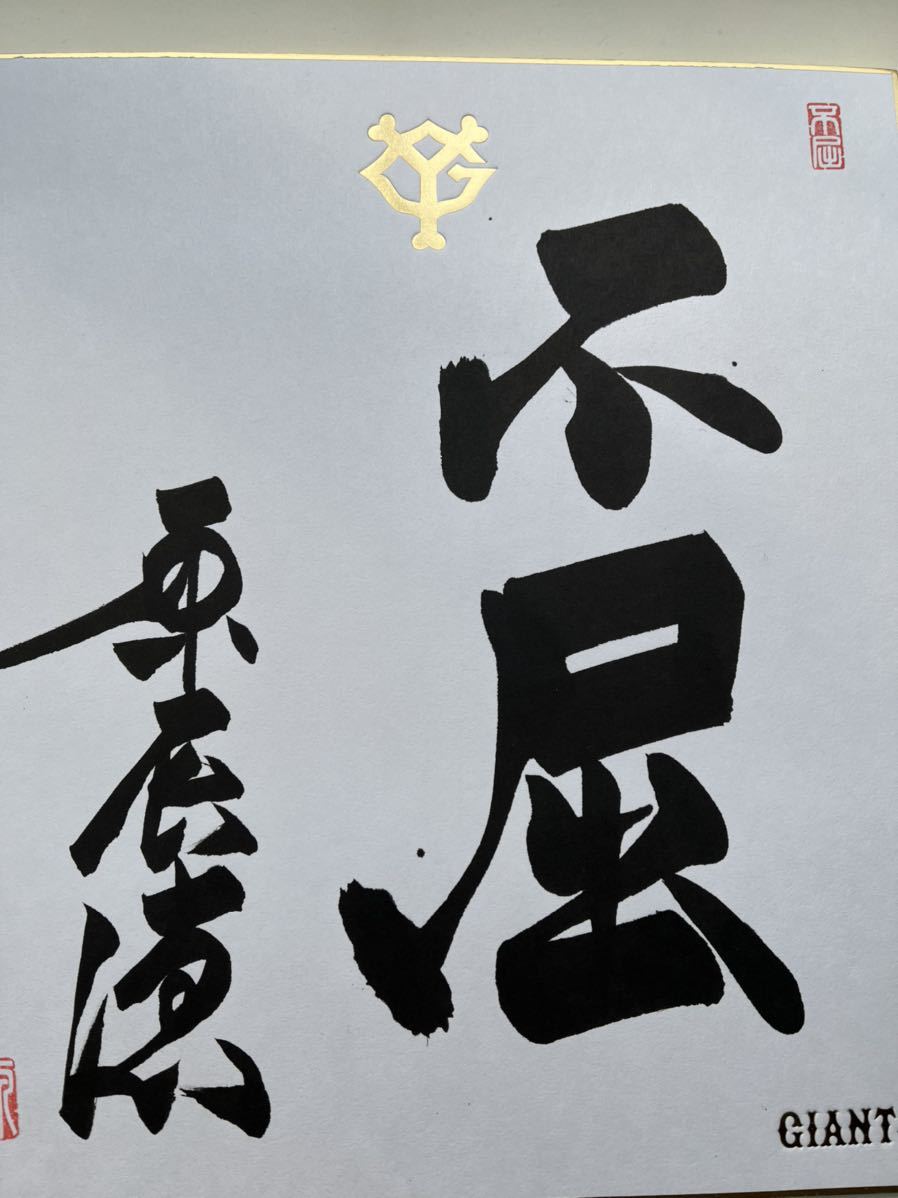 不屈
不屈
原辰徳
GIANT